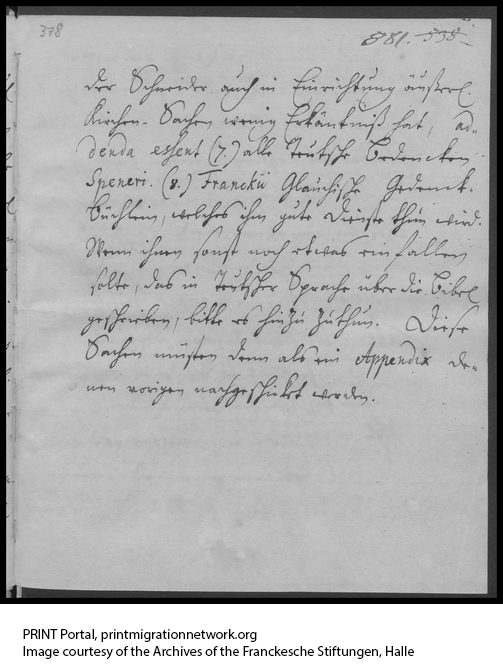 378
881. 538
der Schneider auch in Einrichtung äußerl.
Kirchen-Sachen wenig Erkäntniß hat, ad-
denda essent (7.) alle Teutsche Bedencken
Speneri. (8.) Franckii Glauchische Gedenck-
Büchlein, welches ihm gute Dienste thun wird.
Wenn ihnen sonst noch etwas einfallen
solte, das in Teutscher Sprache über die Bibel
geschrieben, bitte es hinzu zuthun. Diese
Sachen müsten denn als ein Appendix de-
nen vorigen nachgeschickt werden.
PRINT Portal, printmigrationnetwork.org
Image courtesy of the Archives of the Franckesche Stiftungen, Halle